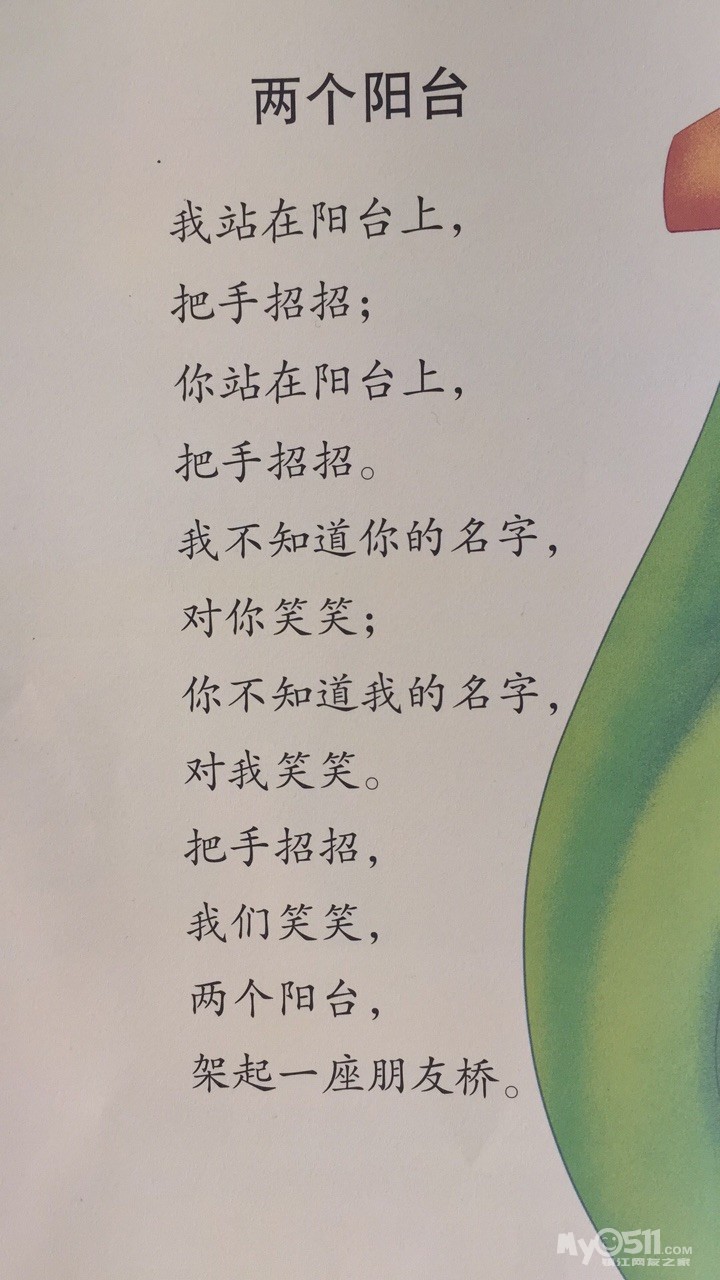 两个阳台
我站在阳台上，
把手招招；
你站在阳台上，
把手招招。
我不知道你的名字，
对你笑笑；
你不知道我的名字，
对我笑笑。
把手招招，
我们笑笑，
两个阳台，
架起一座朋友桥。
My0511.COM
镇江网友之家